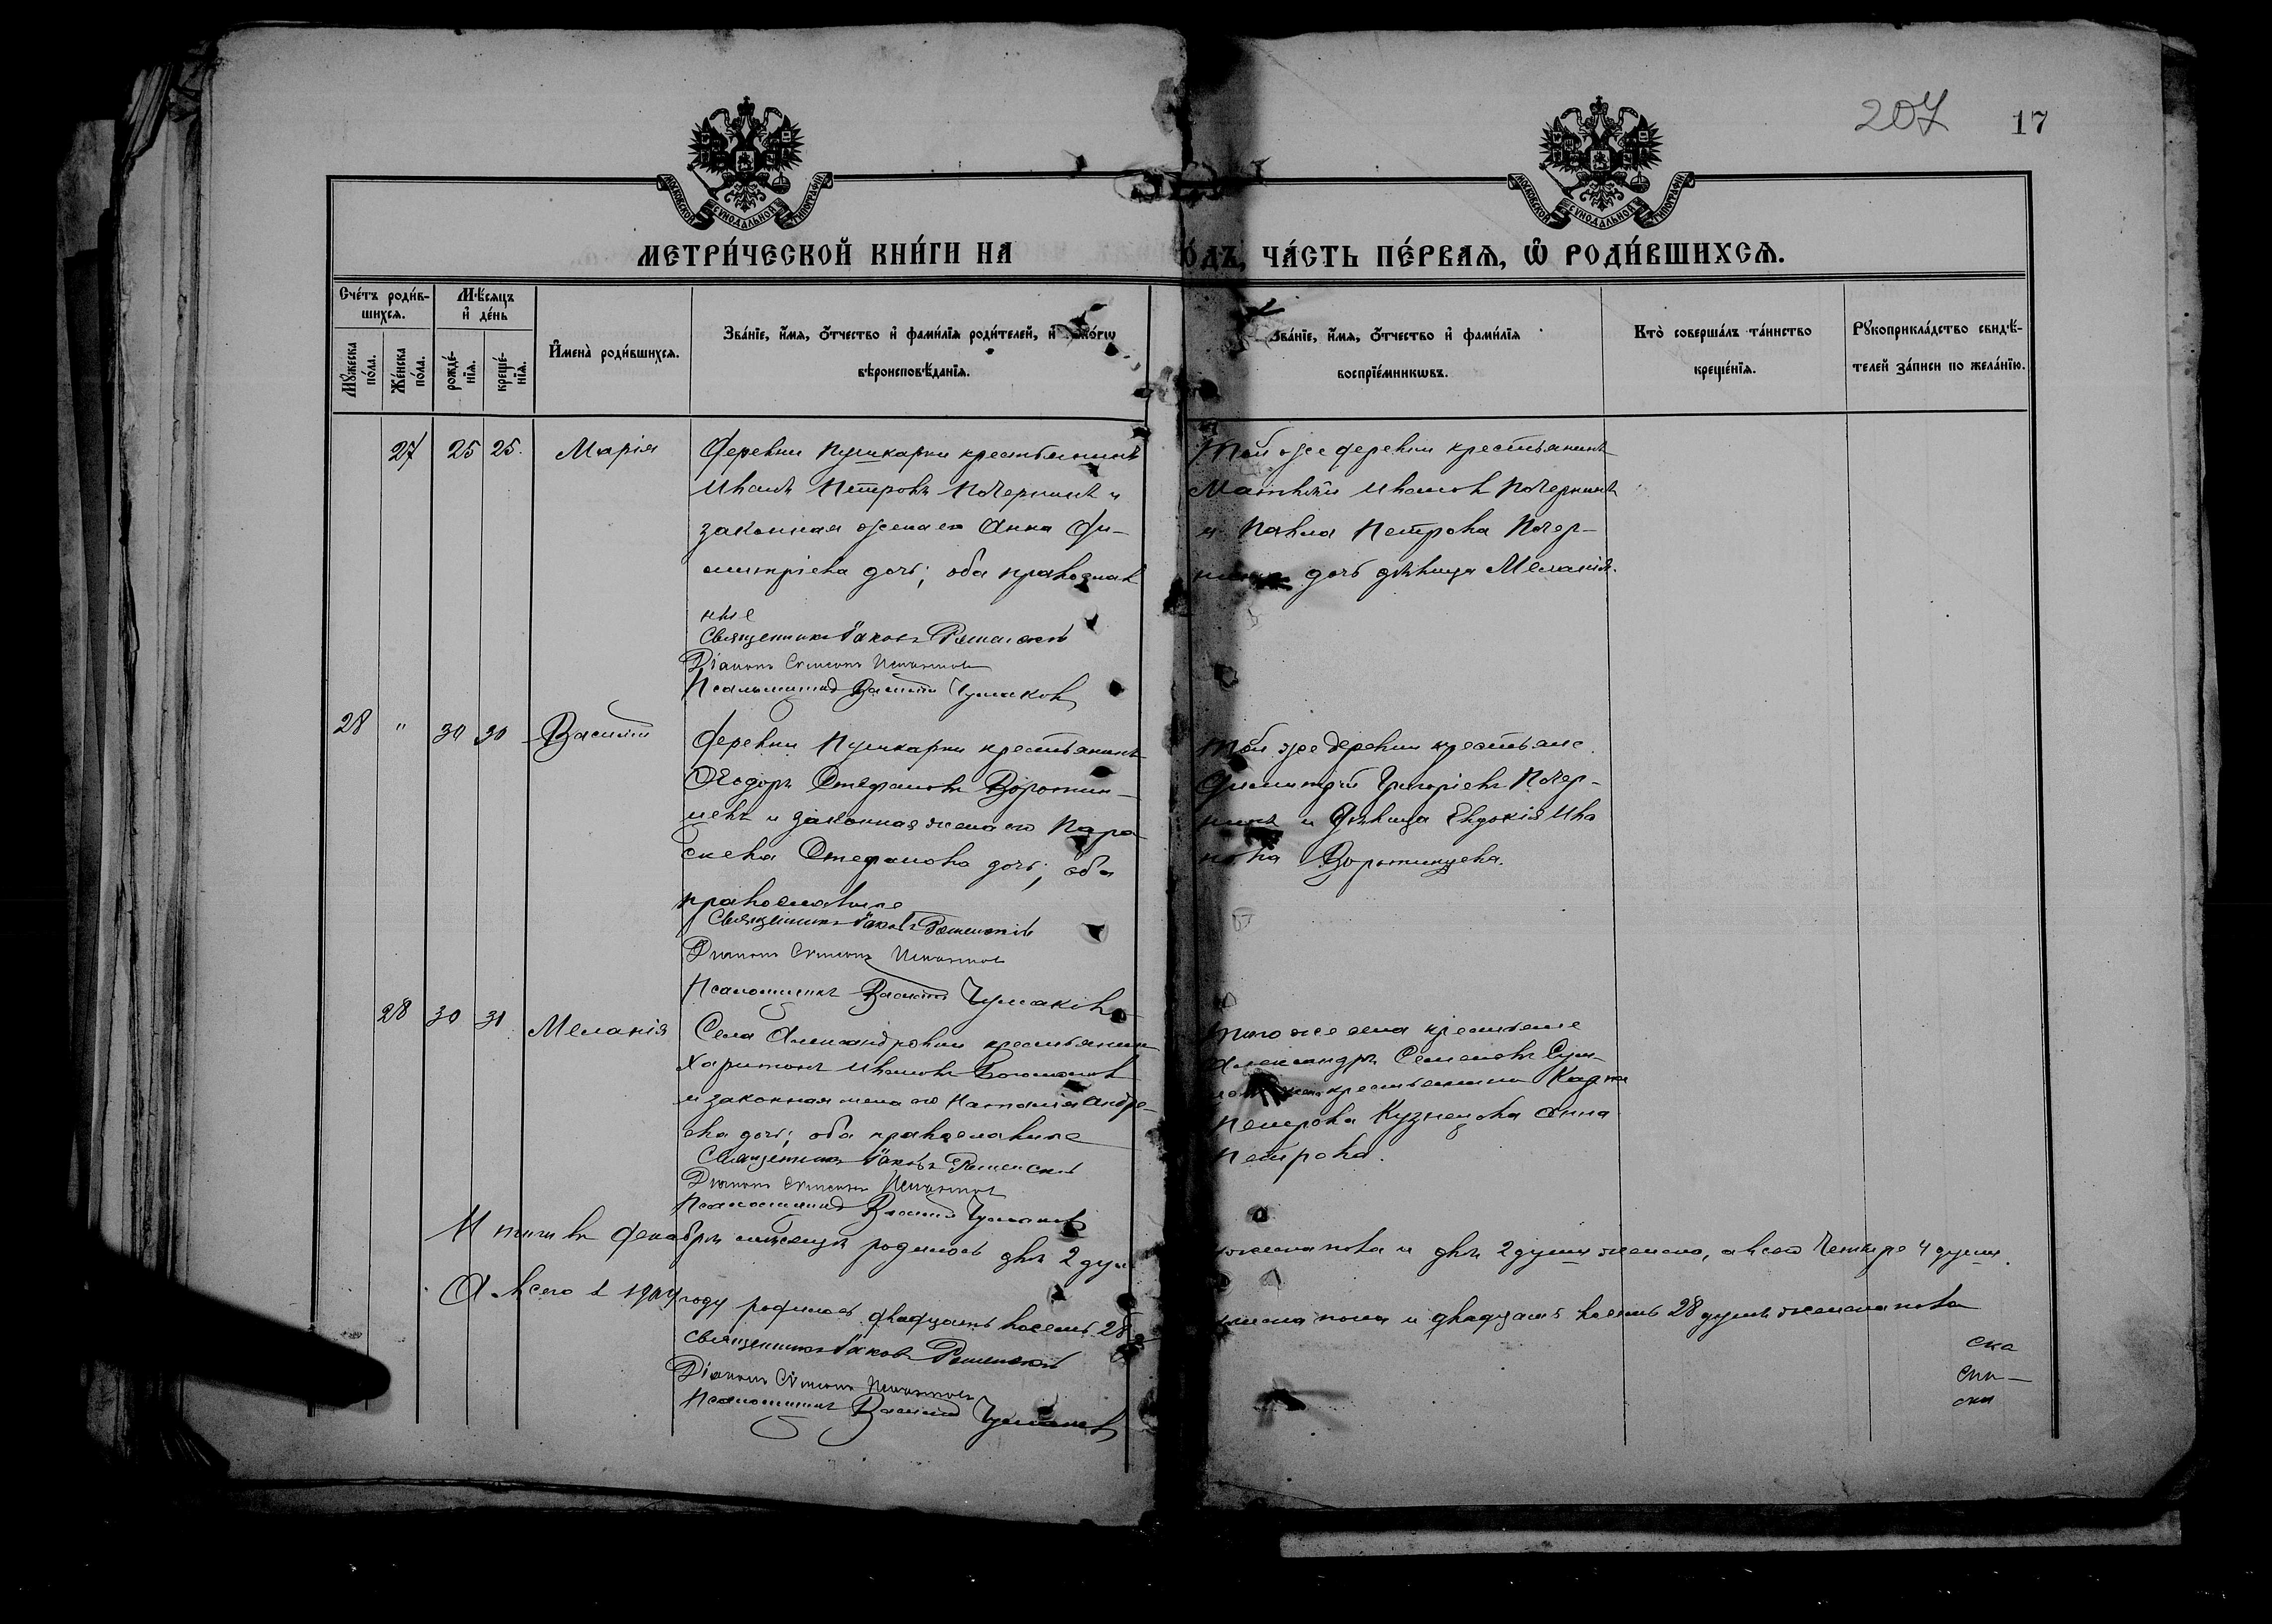 207 17
МОСКОВСКОЙ СѴНОДАЛЬНОЙ ТИПОГРАФІИ
МОСКОВСКОЙ СѴНОДАЛЬНОЙ ТИПОГРАФІИ
МЕТРИ́ЧЕСКОЙ КНИ́ГИ НА
О́ДЪ, ЧА́СТЬ ПЕ́РВАѦ, Ѿ РОДИ́ВШИХСѦ.
Сче́тъ роди́в-
шихсѧ.
Мꙋ́жеска по́ла.
Же́нска по́ла.
Мѣ́сѧцъ и҆ де́нь
рожде́-
нїѧ.
креще́-
нїѧ.
И҆мена̀ роди́вшихсѧ.
Зва́нїе, и҆́мѧ, ѻ҆́тчество и҆ фами́лїѧ роди́телей, и҆
вѣроисповѣ́данїѧ.
Зва́нїе, и҆́мѧ, ѻ҆́тчество и҆ фами́лїѧ
воспрїе́мникѡвъ.
Кто̀ соверша́лъ та́инство
креще́нїѧ.
Рꙋкоприкла́дство свидѣ́-
телей за́писи по жела́нїю.
27 25 25. Марія
Деревни Пушкарки крестьянинъ
Иванъ Петровъ Почернинъ и
законная жена его Анна Ди-
митріева дочь; оба православ
ные
Священникъ Іаковъ
Діаконъ Сѵмеонъ
Псаломщикъ Василій Чумаковъ
Той же деревни крестьянинъ
Матвѣй Ивановъ Почернинъ
и Павла Петрова Почер-
нина дочь дѣвица Меланія.
28 " 30 30 Василій
Деревни Пушкарки крестьянинъ
Ѳеодоръ Стефановъ Воротын-
цевъ и законная жена его Пара-
скева Стефанова дочь; оба
православные
Священникъ Іаковъ
Діаконъ Сѵмеонъ
Псаломщикъ Василій Чумаковъ
Той же деревни крестьяне
Димитрій Григоріевъ Почер-
нинъ и дѣвица Евдокія Ива
нова Воротынцева.
28 30 31 Меланія
Села Александровки крестьянинъ
Харитонъ Ивановъ
и законная жена его Наталія Андре-
ева дочь; оба православные
Священникъ Іаковъ
Діаконъ Сѵмеонъ
Псаломщикъ Василій Чумаковъ
Того же села крестьяне
Александръ Семеновъ
крестьянина Карпа
Петрова Кузнецова Анна
Петрова.
Итого въ Декабрѣ мѣсяцѣ родилось двѣ 2 душ
пола и двѣ 2 души женска, а всего четыре 4 души.
А всего въ 1904 году родилось двадцать восемь 28
пола и двадцать восемь 28 душъ женска пола
Священникъ Іаковъ
Діаконъ Сѵмеонъ
Псаломщикъ Василій Чумаковъ
ска